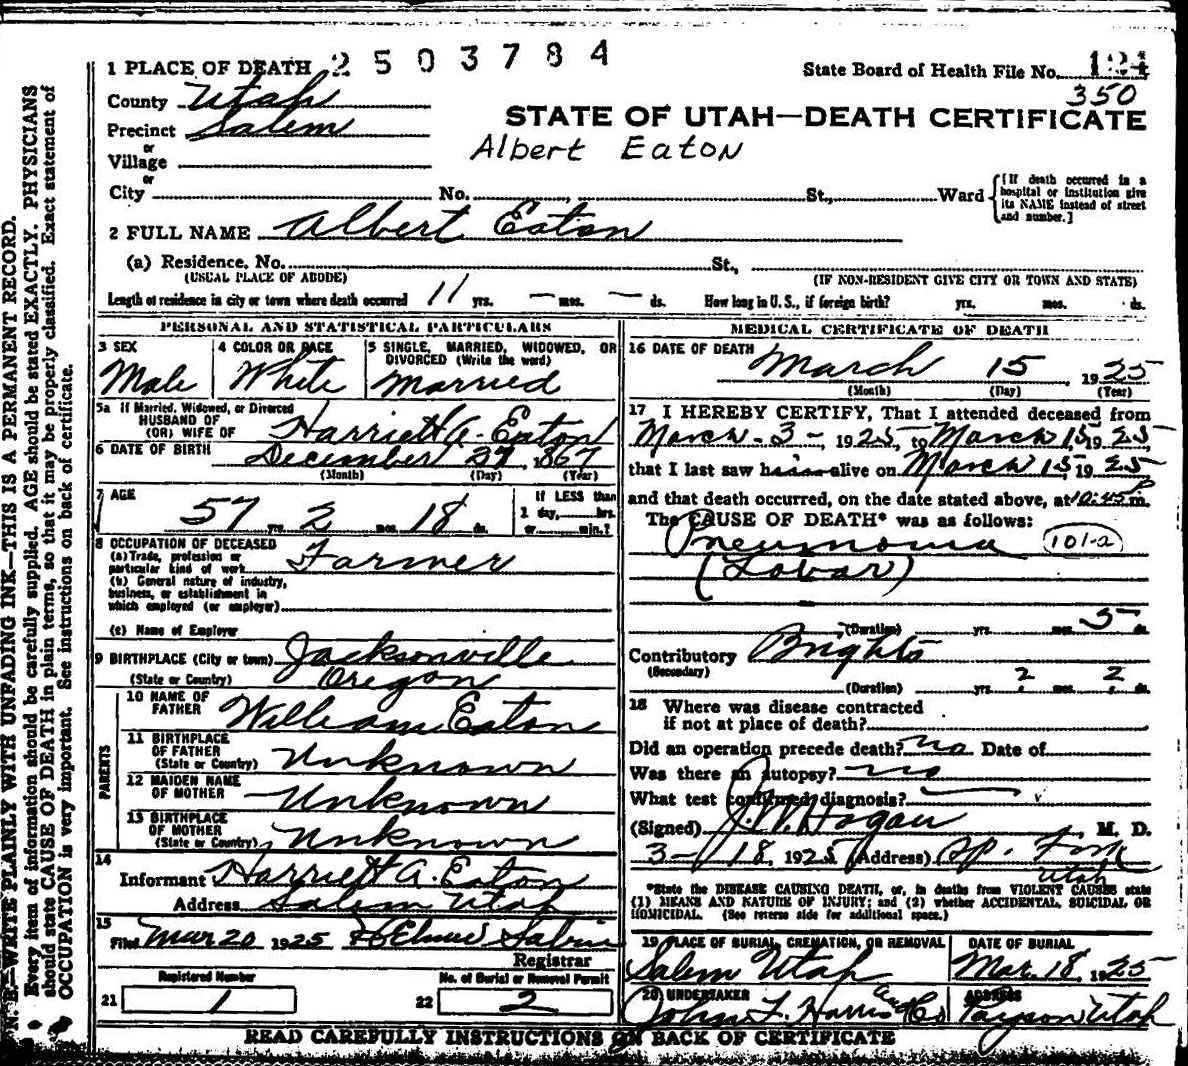 1 PLACE OF DEATH 2 5 0 3 7 8 4
State Board of Health File No. 124
350
County Utah
Precinct Salem
or
Village
or
City No. St., Ward
STATE OF UTAH—DEATH CERTIFICATE
Albert Eaton
[If death occurred in a
hospital or institution give
its NAME instead of street
and number.]
2 FULL NAME Albert Eaton
(a) Residence. No. St.,
(USUAL PLACE OF ABODE) (IF NON-RESIDENT GIVE CITY OR TOWN AND STATE)
Length of residence in city or town where death occurred 11 yrs. — mos. — ds. How long in U. S., if foreign birth? yrs. mos. ds.
PERSONAL AND STATISTICAL PARTICULARS
3 SEX
Male
4 COLOR OR RACE
White
5 SINGLE, MARRIED, WIDOWED, OR
DIVORCED (Write the word)
Married
5a If Married, Widowed, or Divorced
HUSBAND OF
(OR) WIFE OF Harriett A. Eaton
6 DATE OF BIRTH December 27, 1867
(Month) (Day) (Year)
7 AGE
57 yrs. 2 mos. 18 ds.
If LESS than
1 day, hrs.
or min.?
8 OCCUPATION OF DECEASED
(a) Trade, profession or
particular kind of work Farmer
(b) General nature of industry,
business, or establishment in
which employed (or employer)
(c) Name of Employer
9 BIRTHPLACE (City or town) Jacksonville
(State or Country) Oregon
PARENTS
10 NAME OF
FATHER William Eaton
11 BIRTHPLACE
OF FATHER
(State or Country) Unknown
12 MAIDEN NAME
OF MOTHER Unknown
13 BIRTHPLACE
OF MOTHER
(State or Country) Unknown
14
Informant Harriett A. Eaton
Address Salem Utah
15
Filed Mar 20 1925 Sabin
Registrar
Registered Number
21 1
No. of Burial or Removal Permit
22 2
MEDICAL CERTIFICATE OF DEATH
16 DATE OF DEATH
March 15, 1925
(Month) (Day) (Year)
17 I HEREBY CERTIFY, That I attended deceased from
March - 3 -, 1925, to March 15, 1925
that I last saw him alive on March 15, 1925
and that death occurred, on the date stated above, at 10:45 P m.
The CAUSE OF DEATH* was as follows:
Pneumonia 101-a
(Lobar)
(Duration) yrs. mos. 5 ds.
Contributory Brights
(Secondary)
(Duration) yrs. 2 2
18 Where was disease contracted
if not at place of death?
Did an operation precede death? no Date of
Was there an autopsy? no
What test confirmed diagnosis?
(Signed) J. W. Hogan, M. D.
3 - 18, 1925 (Address) Sp. Fork
Utah
*State the DISEASE CAUSING DEATH, or, in deaths from VIOLENT CAUSES state
(1) MEANS AND NATURE OF INJURY; and (2) whether ACCIDENTAL, SUICIDAL OR
HOMICIDAL. (See reverse side for additional space.)
19 PLACE OF BURIAL, CREMATION, OR REMOVAL
Salem Utah
DATE OF BURIAL
Mar. 18, 1925
20 UNDERTAKER
John F. Harris and Co
ADDRESS
Payson Utah
READ CAREFULLY INSTRUCTIONS ON BACK OF CERTIFICATE
N. B.—WRITE PLAINLY WITH UNFADING INK—THIS IS A PERMANENT RECORD.
Every item of information should be carefully supplied. AGE should be stated EXACTLY. PHYSICIANS
should state CAUSE OF DEATH in plain terms, so that it may be properly classified. Exact statement of
OCCUPATION is very important. See instructions on back of certificate.